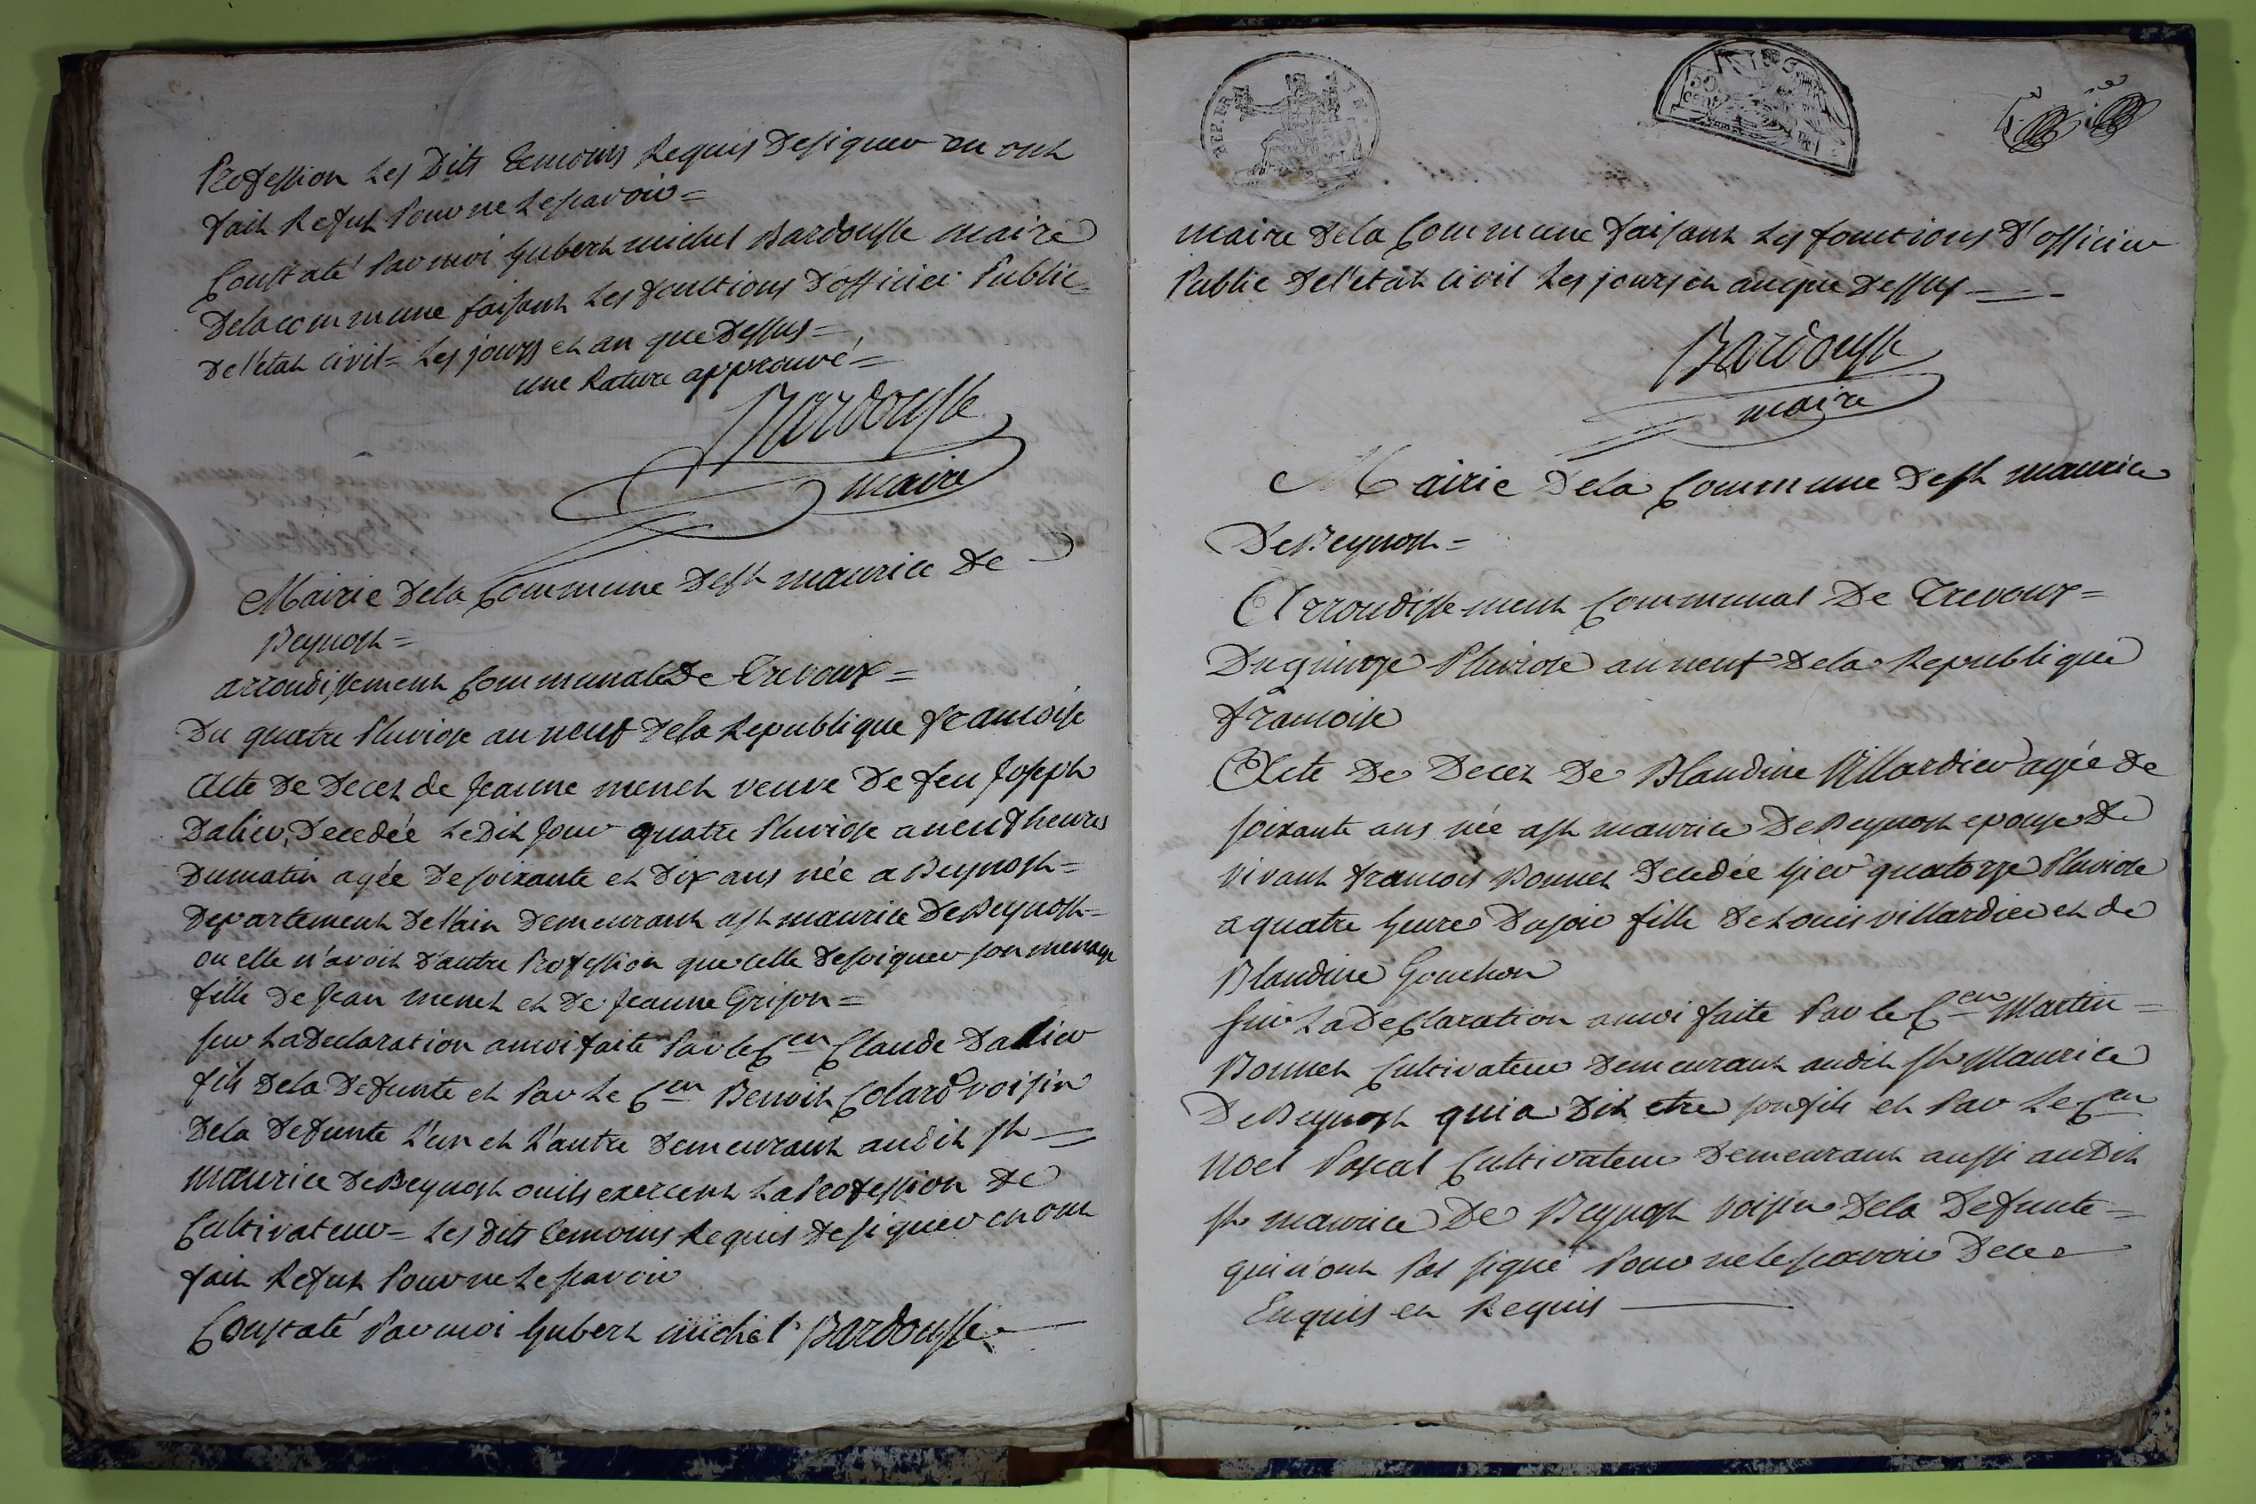 Profession Les Dits temoins Requis Designer en ont
fait Refus Pour ne Le scavoir =
Constaté Par moi hubert michel Bardousse maire
Dela commune faisant Les fonctions D'officier Public
De l'etat civil = Les jours et an que Dessus =
une Rature approuvé =
Bardousse
maire
Mairie Dela Commune De st maurice De
Beynost =
arrondissement Communal De Trevoux =
Du quatre Pluviose an neuf Dela Republique francoise
Acte De Deces de Jeanne menet veuve De feu Joseph
Dalier, Decedée Le Dit Jour quatre Pluviose a neuf heures
Dumatin agée De soixante et Dix ans née a Beynost =
Departement De l'ain Demeurant a st maurice De Beynost =
ou elle n'avoit D'autre Profession que celle De soigner son menage
fille De Jean menet et De Jeanne Grison =
sur La Declaration a moi faite Par le Cen Claude Dalier
fils Dela Defunte et Par Le Cen Benoit Colard voisin
Dela Defunte L'un et L'autre Demeurant audit st =
maurice De Beynost ou ils exercent La Profession De
Cultivateur = Les dits temoins Requis De signer en ont
fait Refus Pour ne Le scavoir
Constaté Par moi hubert michel Bardousse
REP. FRA
50
CENT
maire Dela Commune faisant Les fonctions D'officier
Public De l'etat civil Les jours et an que Dessus
Bardousse
maire
Mairie Dela Commune De st maurice
De Beynost =
Arrondissement Communal De Trevoux =
Du quinze Pluviose an neuf Dela Republique
francoise
Acte De Deces De Blandine Villardier agée De
soixante ans née a st maurice De Beynost epouse De
vivant francois Bonnet Decedée hier quatorze Pluviose
a quatre heures Du soir fille De Louis villardier et de
Blandine Gonchon
sur La Declaration a moi faite Par le Cen Martin =
Bonnet Cultivateur Demeurant audit st Maurice
De Beynost qui a Dit etre son fils et Par Le Cen
Noel Pascal Cultivateur Demeurant aussi au Dit
st maurice De Beynost voisin Dela Defunte =
qui n'ont Pas signé Pour ne le scavoir De ce
Enquis et Requis